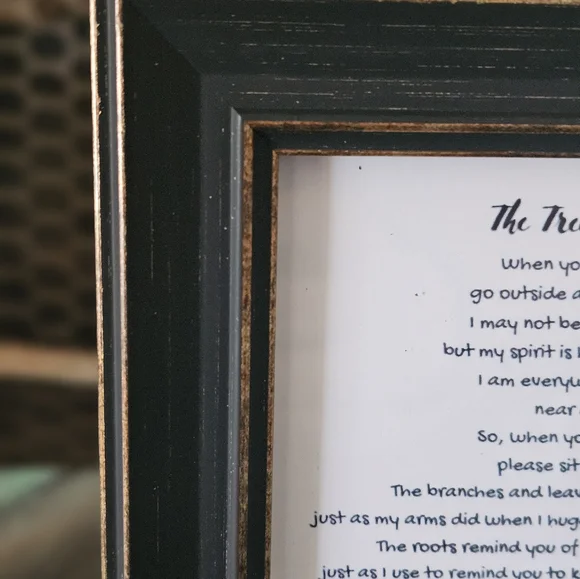 The Tre
When yo
go outside a
I may not be
but my spirit is
I am every
near
So, when yo
please sit
The branches and leav
just as my arms did when I hug
The roots remind you of
just as I use to remind you to k